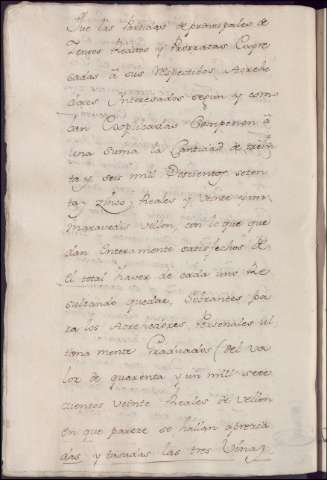 Que las Partidas de principales de
Zensos Reditos y Prorratas Expre
sadas â sus Respectibos Acrehe
dores Interesados segun y como
dan Explicadas Componen â
una suma la Cantidad de trein
ta y seis mil Doscientos seten
ta y zinco Reales y veinte
maravedis vellon, con lo que que
dan Enteramente satisfechos de
el total haver de cada uno Re
sultando quedar, Sobrantes pa
ra los Acrehedores Personales ul
tima mente Graduados (del va
lor de quarenta y un mil sete
cientos veinte Reales de Vellon
en que pareze se hallan aprecia
das, y tasadas las tres Viñas